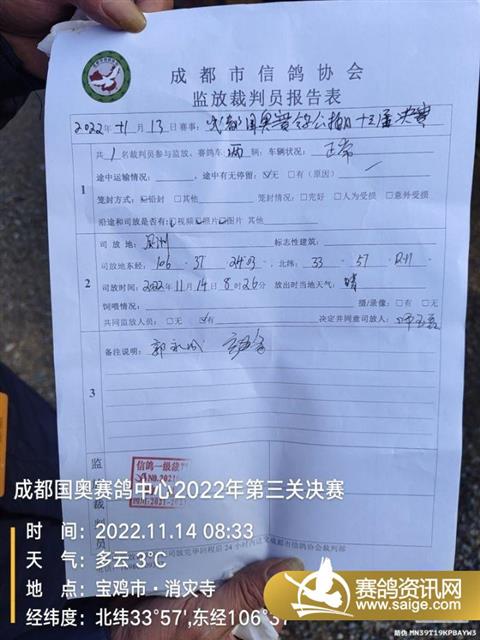 成都市信鸽协会
监放裁判员报告表
2022年11月13日赛事:
决赛
1
共1名裁判员参与监放、赛鸽车两辆;车辆状况: 正常
途中运输情况: 途中有无停留:☑无 □有(原因)
笼封方式:☑铅封 □其他 笼封情况:□完好 □人为受损 □意外受损
沿途和司放是否有:☑视频☑照片☑图片 其他
2
司放地: 标志性建筑:
司放地东经: 106 . 37 . 北纬: 33 . 57 .
司放时间:2022年11月14日8时26分 放出时当地天气: 晴
饲喂情况: 摄/录像:□有 □无
共同监放人员:□无 ☑有 决定共同意司放人:
备注说明:
3
监放裁判员
信鸽一级裁
成都国奥赛鸽中心2022年第三关决赛
时 间:2022.11.14 08:33
天 气:多云 3℃
地 点:宝鸡市·消灾寺
经纬度:北纬33°57',东经106°37'
赛鸽资讯网
www.saige.com
防伪 MN39I19KPBAYW3